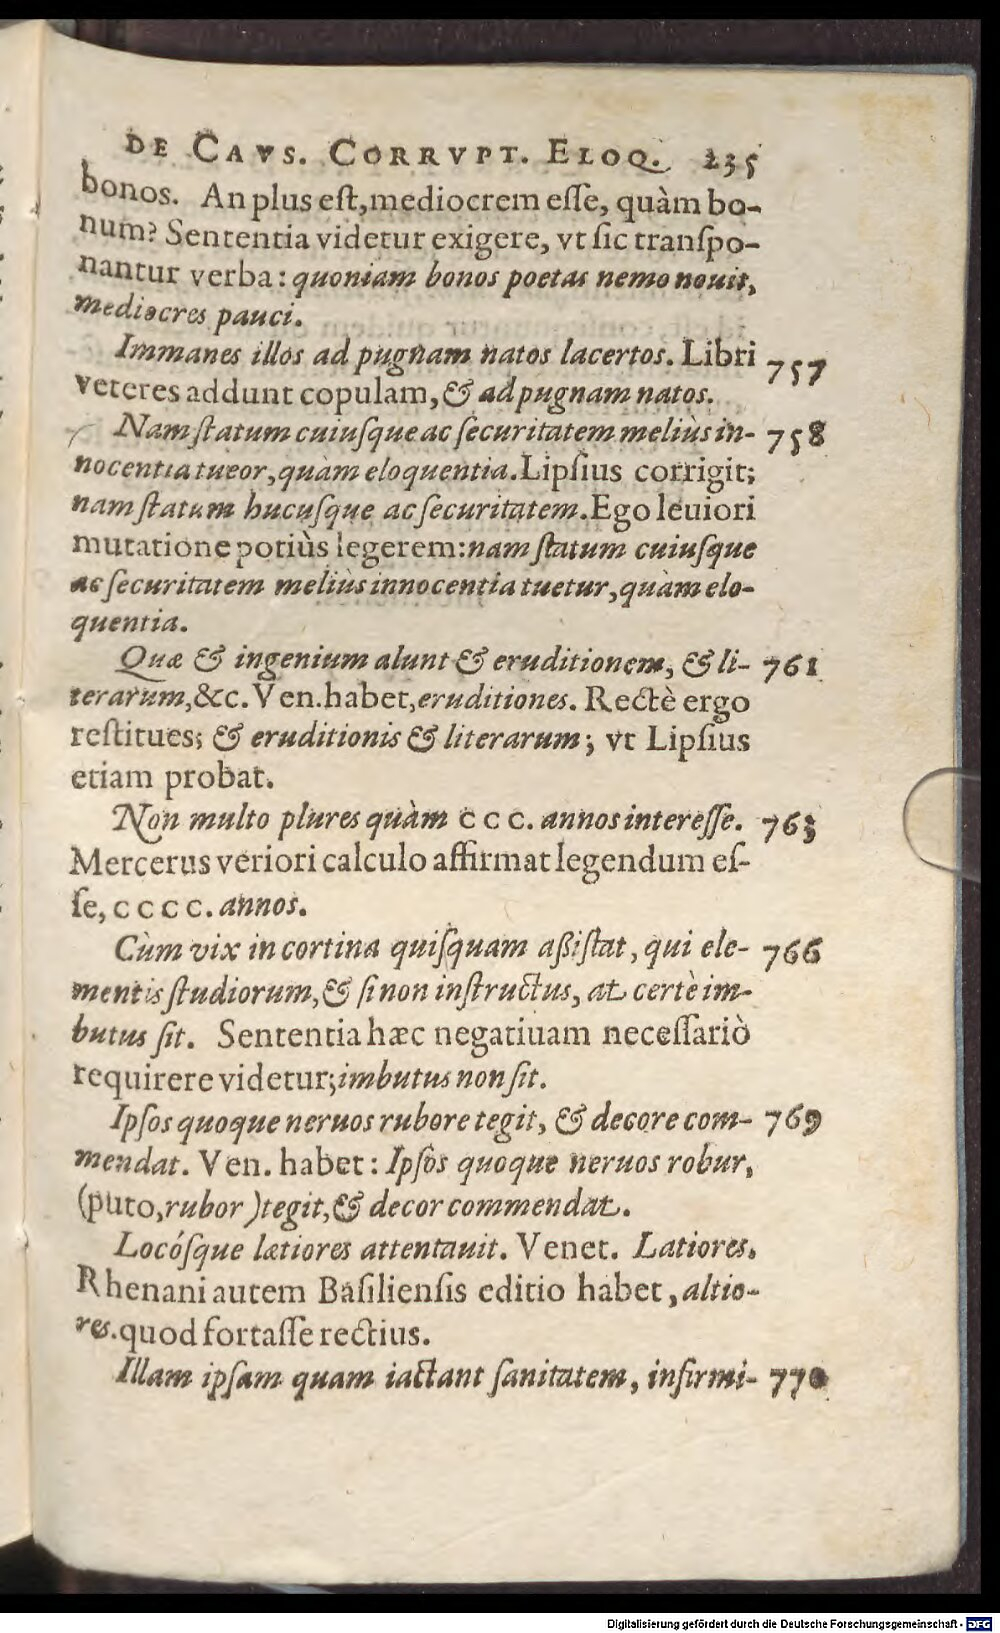 DE CAVS. CORRVPT. ELOQ. 235
bonos. An plus eſt, mediocrem eſſe, quàm bo-
num? Sententia videtur exigere, vt ſic tranſpo-
nantur verba: quoniam bonos poetas nemo nouit,
mediocres pauci.
Immanes illos ad pugnam natos lacertos. Libri 757
veteres addunt copulam, & ad pugnam natos.
Nam ſtatum cuiuſque ac ſecuritatem meliùs in- 758
nocentia tueor, quàm eloquentia. Lipſius corrigit;
nam ſtatum hucuſque ac ſecuritatem. Ego leuiori
mutatione potiùs legerem: nam ſtatum cuiuſque
ac ſecuritatem meliùs innocentia tuetur, quàm elo-
quentia.
Quæ & ingenium alunt & eruditionem, & li- 761
terarum, &c. Ven. habet, eruditiones. Rectè ergo
reſtitues; & eruditionis & literarum; vt Lipſius
etiam probat.
Non multo plures quàm CCC. annos intereſſe. 763
Mercerus veriori calculo affirmat legendum eſ-
ſe, CCCC. annos.
Cùm vix in cortina quiſquam aßiſtat, qui ele- 766
mentis ſtudiorum, & ſi non inſtructus, at certè im-
butus ſit. Sententia hæc negatiuam neceſſariò
requirere videtur; imbutus non ſit.
Ipſos quoque neruos rubore tegit, & decore com- 769
mendat. Ven. habet: Ipſos quoque neruos robur,
(puto, rubor) tegit, & decor commendat.
Locóſque lætiores attentauit. Venet. Latiores.
Rhenani autem Baſilienſis editio habet, altio-
res. quod fortaſſe rectius.
Illam ipſam quam iactant ſanitatem, infirmi- 770
Digitalisierung gefördert durch die Deutsche Forschungsgemeinschaft - DFG